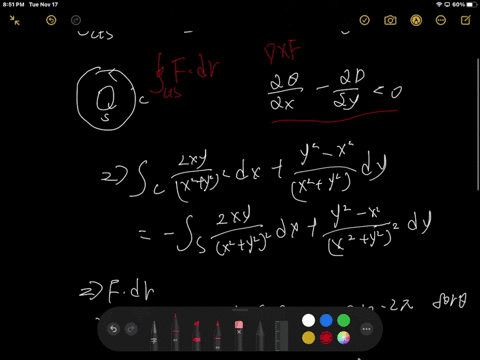 8:51 PM Tue Nov 17
60%
C∪S
∇×F
∮_{C∪S} F·dr
∂Q/∂x − ∂P/∂y < 0
C
S
2) ∫_C 2xy/(x²+y²)² dx + y²−x²/(x²+y²)² dy
= −∫_S 2xy/(x²+y²)² dx + y²−x²/(x²+y²)² dy
2) F·dr
2π for θ